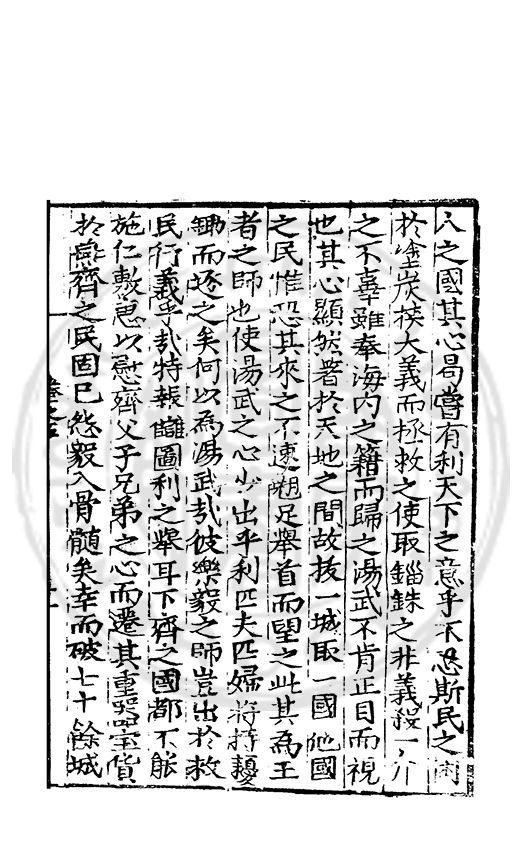 人之國其心曷嘗有利天下之意乎不忍斯民之困
於塗炭挾大義而拯救之使取錙銖之非義殺一介
之不辜雖奉海內之籍而歸之湯武不肯正目而視
也其心顯然著於天地之間故拔一城取一國他國
之民惟恐其來之不速翹足舉首而望之此其為王
者之師也使湯武之心少出乎利匹夫匹婦將持耰
鋤而逐之矣何以為湯武哉彼樂毅之師豈出於救
民行義乎哉特報讎圖利之舉耳下齊之國都不能
施仁敷惠以慰齊父子兄弟之心而遷其重器寶貨
於燕齊之民固已怨毅入骨髓矣幸而破七十餘城
卷之五